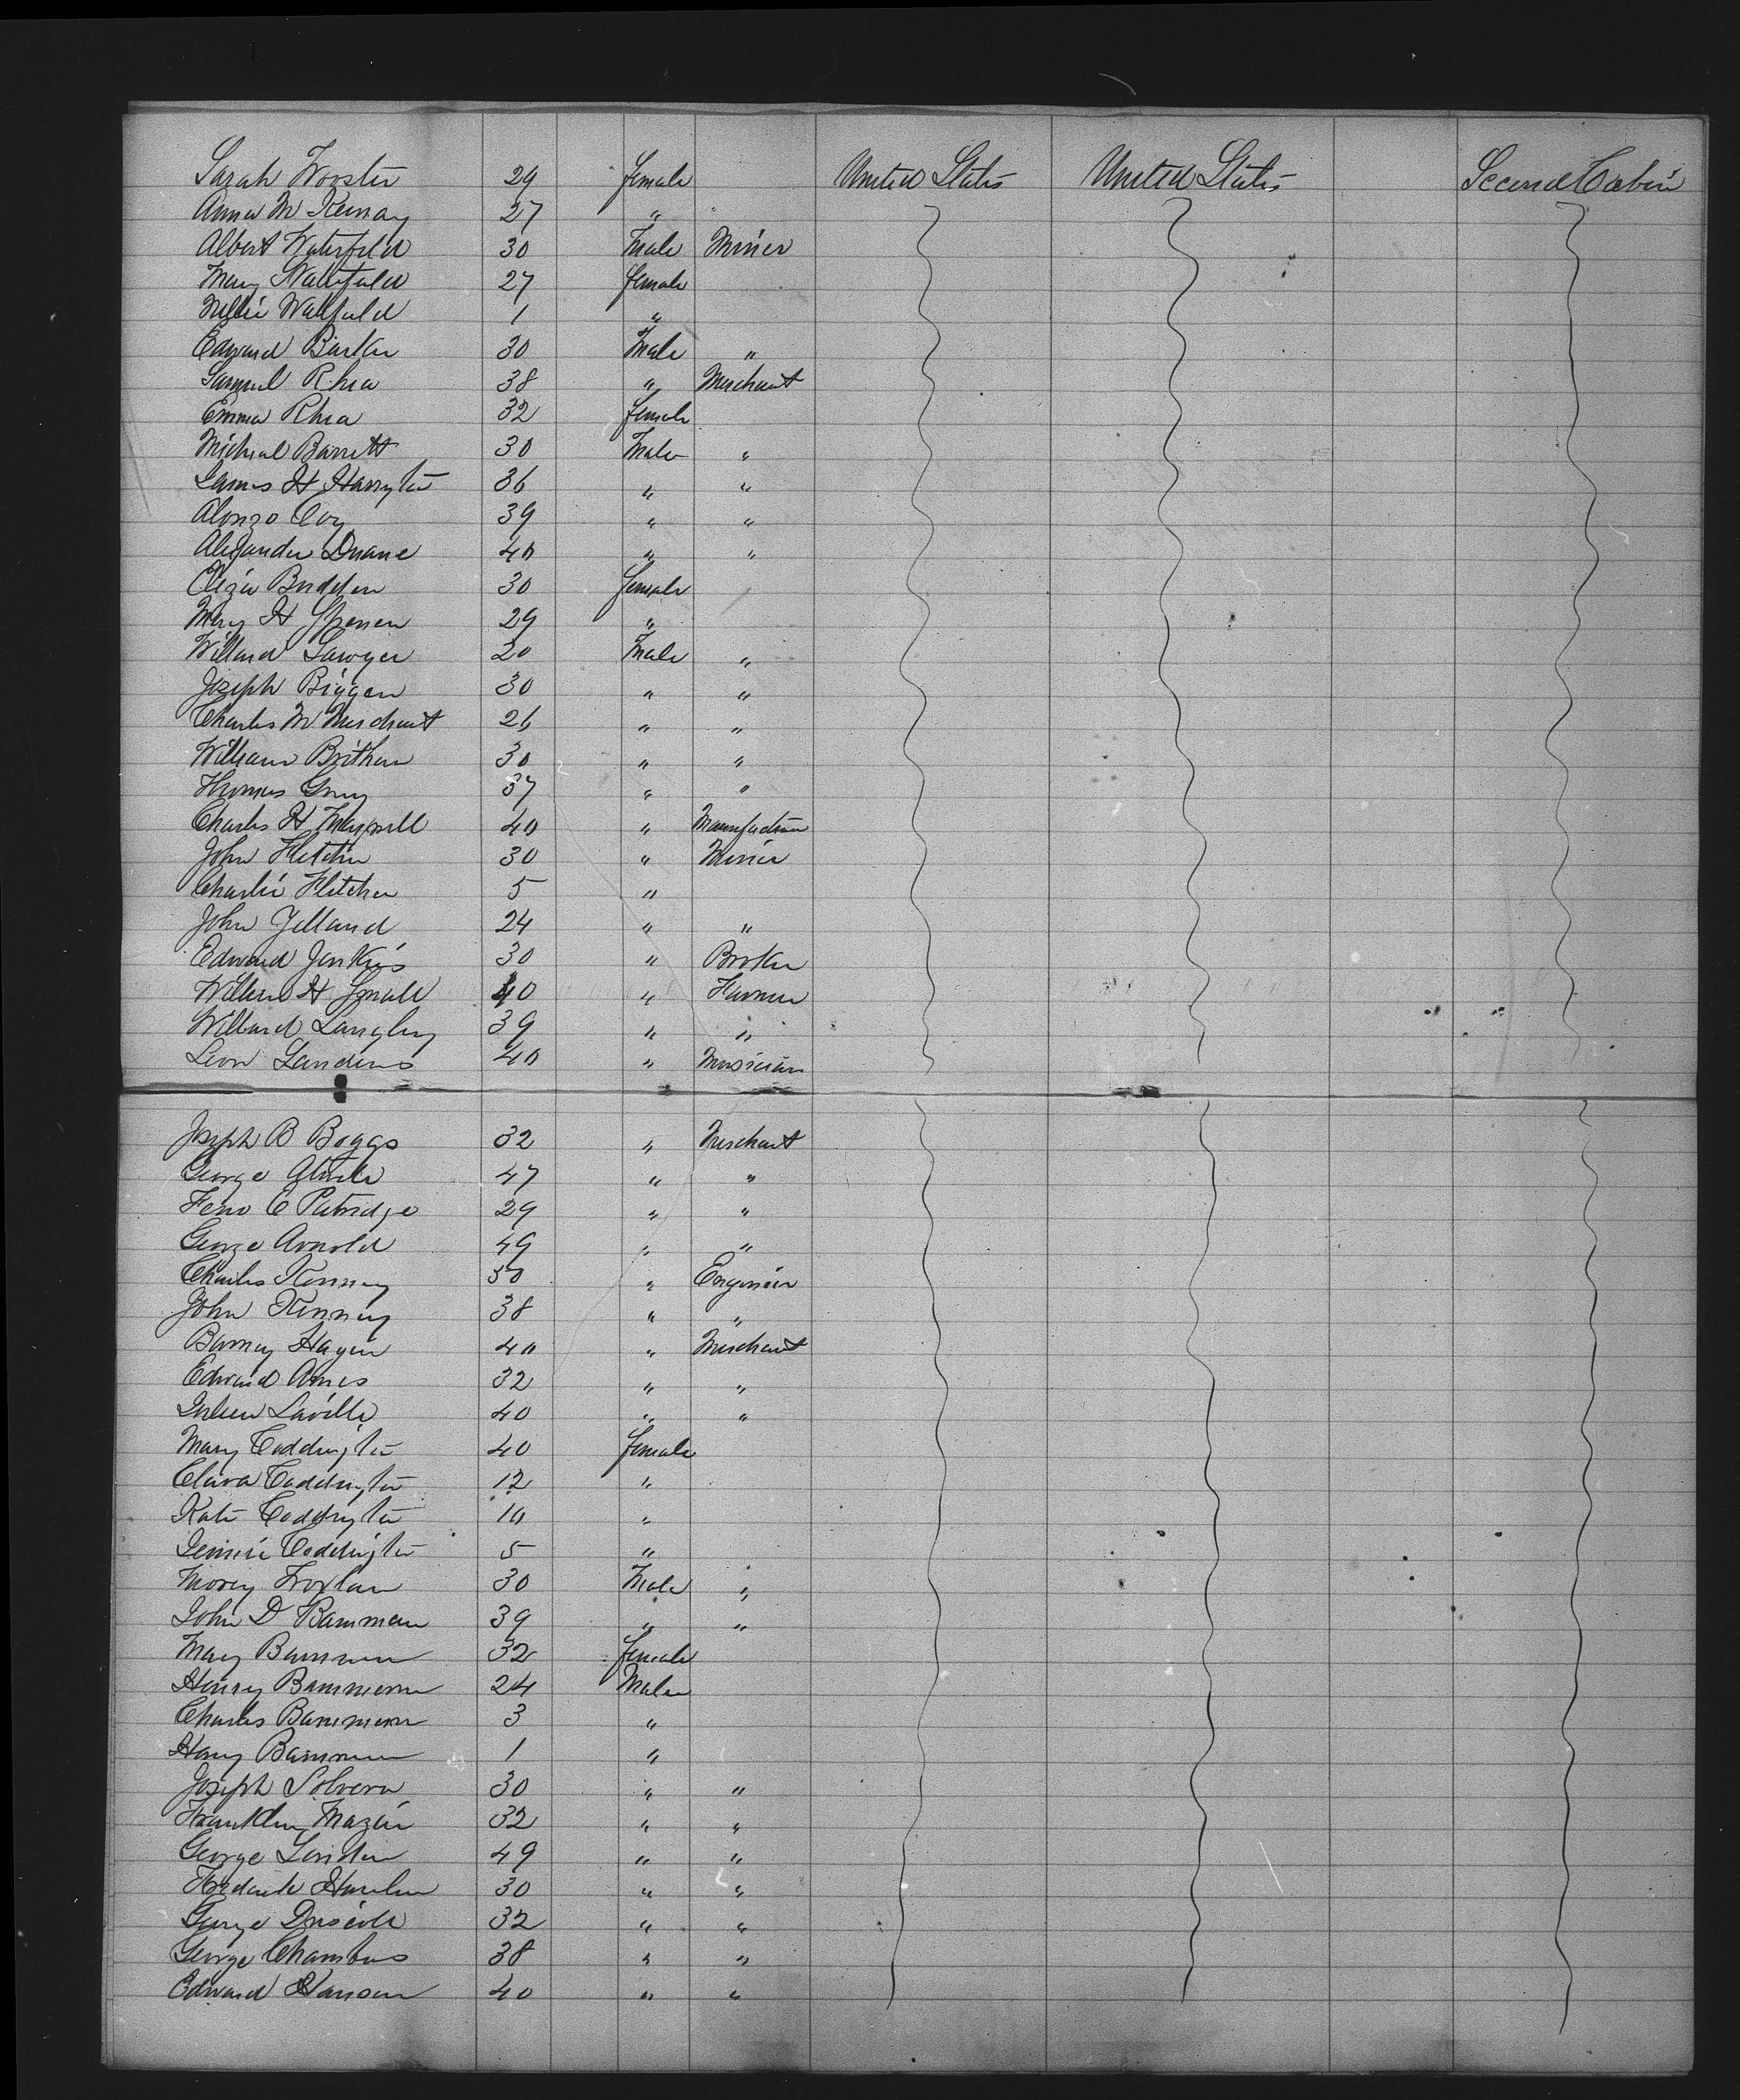 Sarah Wooster 29 female United States United States Second Cabin
Anna M Kenney 27 "
Albert Waterfeld 30 Male Miner
Mary Waterfeld 27 female
Nellie Watfeld 1 "
Edward Barker 30 Male "
Samuel Rhea 38 " Merchant
Emma Rhea 32 female
Micheal Barrett 30 Male "
James H Harrington 36 " "
Alonzo Coy 39 " "
Alexander Duane 40 " "
Eliza Budden 30 female
Mary H Spencer 29 "
Willard Sawyer 20 Male "
Joseph Biggan 30 " "
Charles M Merchant 26 " "
William Britham 30 " "
Thomas Grey 37 " "
Charles H Maxwell 40 " Manufacturer
John Fletcher 30 " Miner
Charlie Fletcher 5 "
John Yelland 24 " "
Edward Jenkins 30 " Broker
William H Small 40 " Farmer
Willard Langley 39 " "
Leon Landers 40 " Musician
Joseph B Boggs 32 " Merchant
George 47 " "
C Patridge 29 " "
George Arnold 49 " "
Charles Kenney 30 " Engineer
John Kenney 38 " "
Barney Hagen 40 " Merchant
Edward Ames 32 " "
Julien Laville 40 " "
Mary Coddington 40 female
Clara Coddington 12 "
Kate Coddington 10 "
Jennie Coddington 5 "
Morey 30 Male "
John D Bamman 39 " "
Mary Bamman 32 female
Henry Bamman 24 Male
Charles Bamman 3 "
Harry Bamman 1 "
Joseph 30 " "
Franklin 32 " "
George 49 " "
Frederick 30 " "
George Driscoll 32 " "
George Chambers 38 " "
Edward Hanson 40 " "